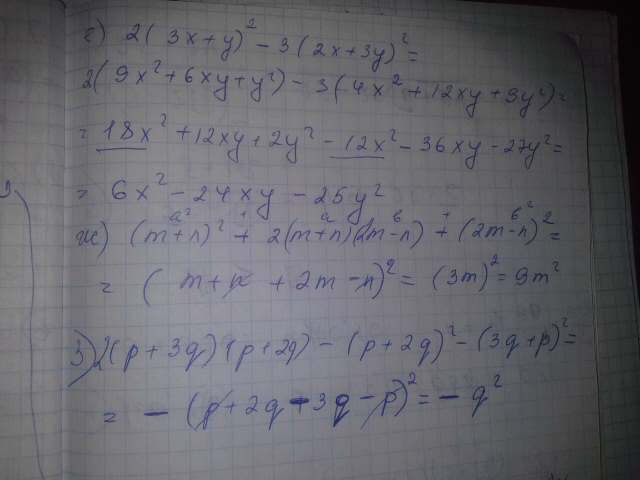 е) 2(3x+y)² - 3(2x+3y)² =
2(9x²+6xy+y²) - 3(4x²+12xy+9y²) =
= 18x²+12xy+2y² - 12x² - 36xy - 27y² =
= 6x² - 24xy - 25y²
a² + a b + b²
ж) (m+n)² + 2(m+n)(2m-n) + (2m-n)² =
= (m+n+2m-n)² = (3m)² = 9m²
з) 2(p+3q)(p+2q) - (p+2q)² - (3q+p)² =
= - (p+2q-3q-p)² = -q²